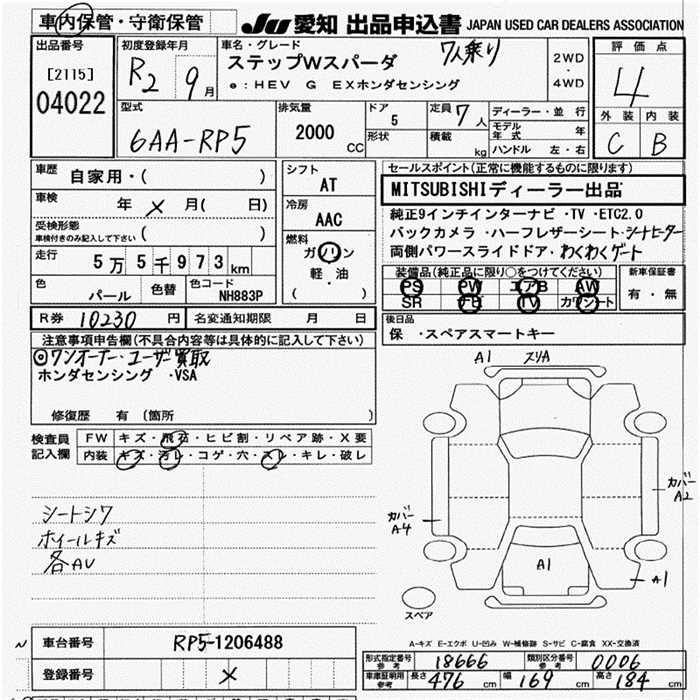 車内保管・守衛保管
JU 愛知 出品申込書 JAPAN USED CAR DEALERS ASSOCIATION
出品番号
[2115]
04022
初度登録年月
R2 9月
車名・グレード
ステップWスパーダ 7人乗り
e:HEV G EXホンダセンシング
2WD
・
4WD
評価点
4
外装 内装
C B
型式
6AA-RP5
排気量
2000
CC
ドア
5
形状
定員 7人
積載 kg
ディーラー・並行
モデル年式 年
ハンドル 左・右
車歴
自家用・( )
車検
年 × 月( 日)
受検形態
車検付きのみ記入して下さい ( )
走行
5万5千973km
色
パール
色替
色コード
NH883P
シフト
AT
冷房
AAC
燃料
ガソリン
軽・油
( )
セールスポイント(正常に機能するものに限ります)
MITSUBISHIディーラー出品
純正9インチインターナビ・TV・ETC2.0
バックカメラ・ハーフレザーシート・シートヒーター
両側パワースライドドア・わくわくゲート
装備品(純正品に限り○をつけてください)
PS PW エアB AW
SR FB TV カワシート
新車保証書
有・無
R券 10230 円
名変通知期限 月 日
後日品
保・スペアスマートキー
注意事項申告欄(不具合内容等は具体的に記入して下さい)
◎ワンオーナー・ユーザー買取
ホンダセンシング ・VSA
修復歴 有 (箇所 )
検査員
記入欄
FW キズ・飛石・ヒビ割・リペア跡・X要
内装 キズ・汚レ・コゲ・穴・スレ・キレ・破レ
シートシワ
ホイールキズ
各AU
A1 スリA
カバー
A2
カバー
A4
A1
A1
スペア
A-キズ E-エクボ U-凹み W-補修跡 S-サビ C-腐食 XX-交換済
車台番号
RP5-1206488
登録番号
×
形式指定番号
参考
18666
類別区分番号
参考
0006
車庫証明用
参考
長さ 476 cm
幅 169 cm
高さ 184 cm